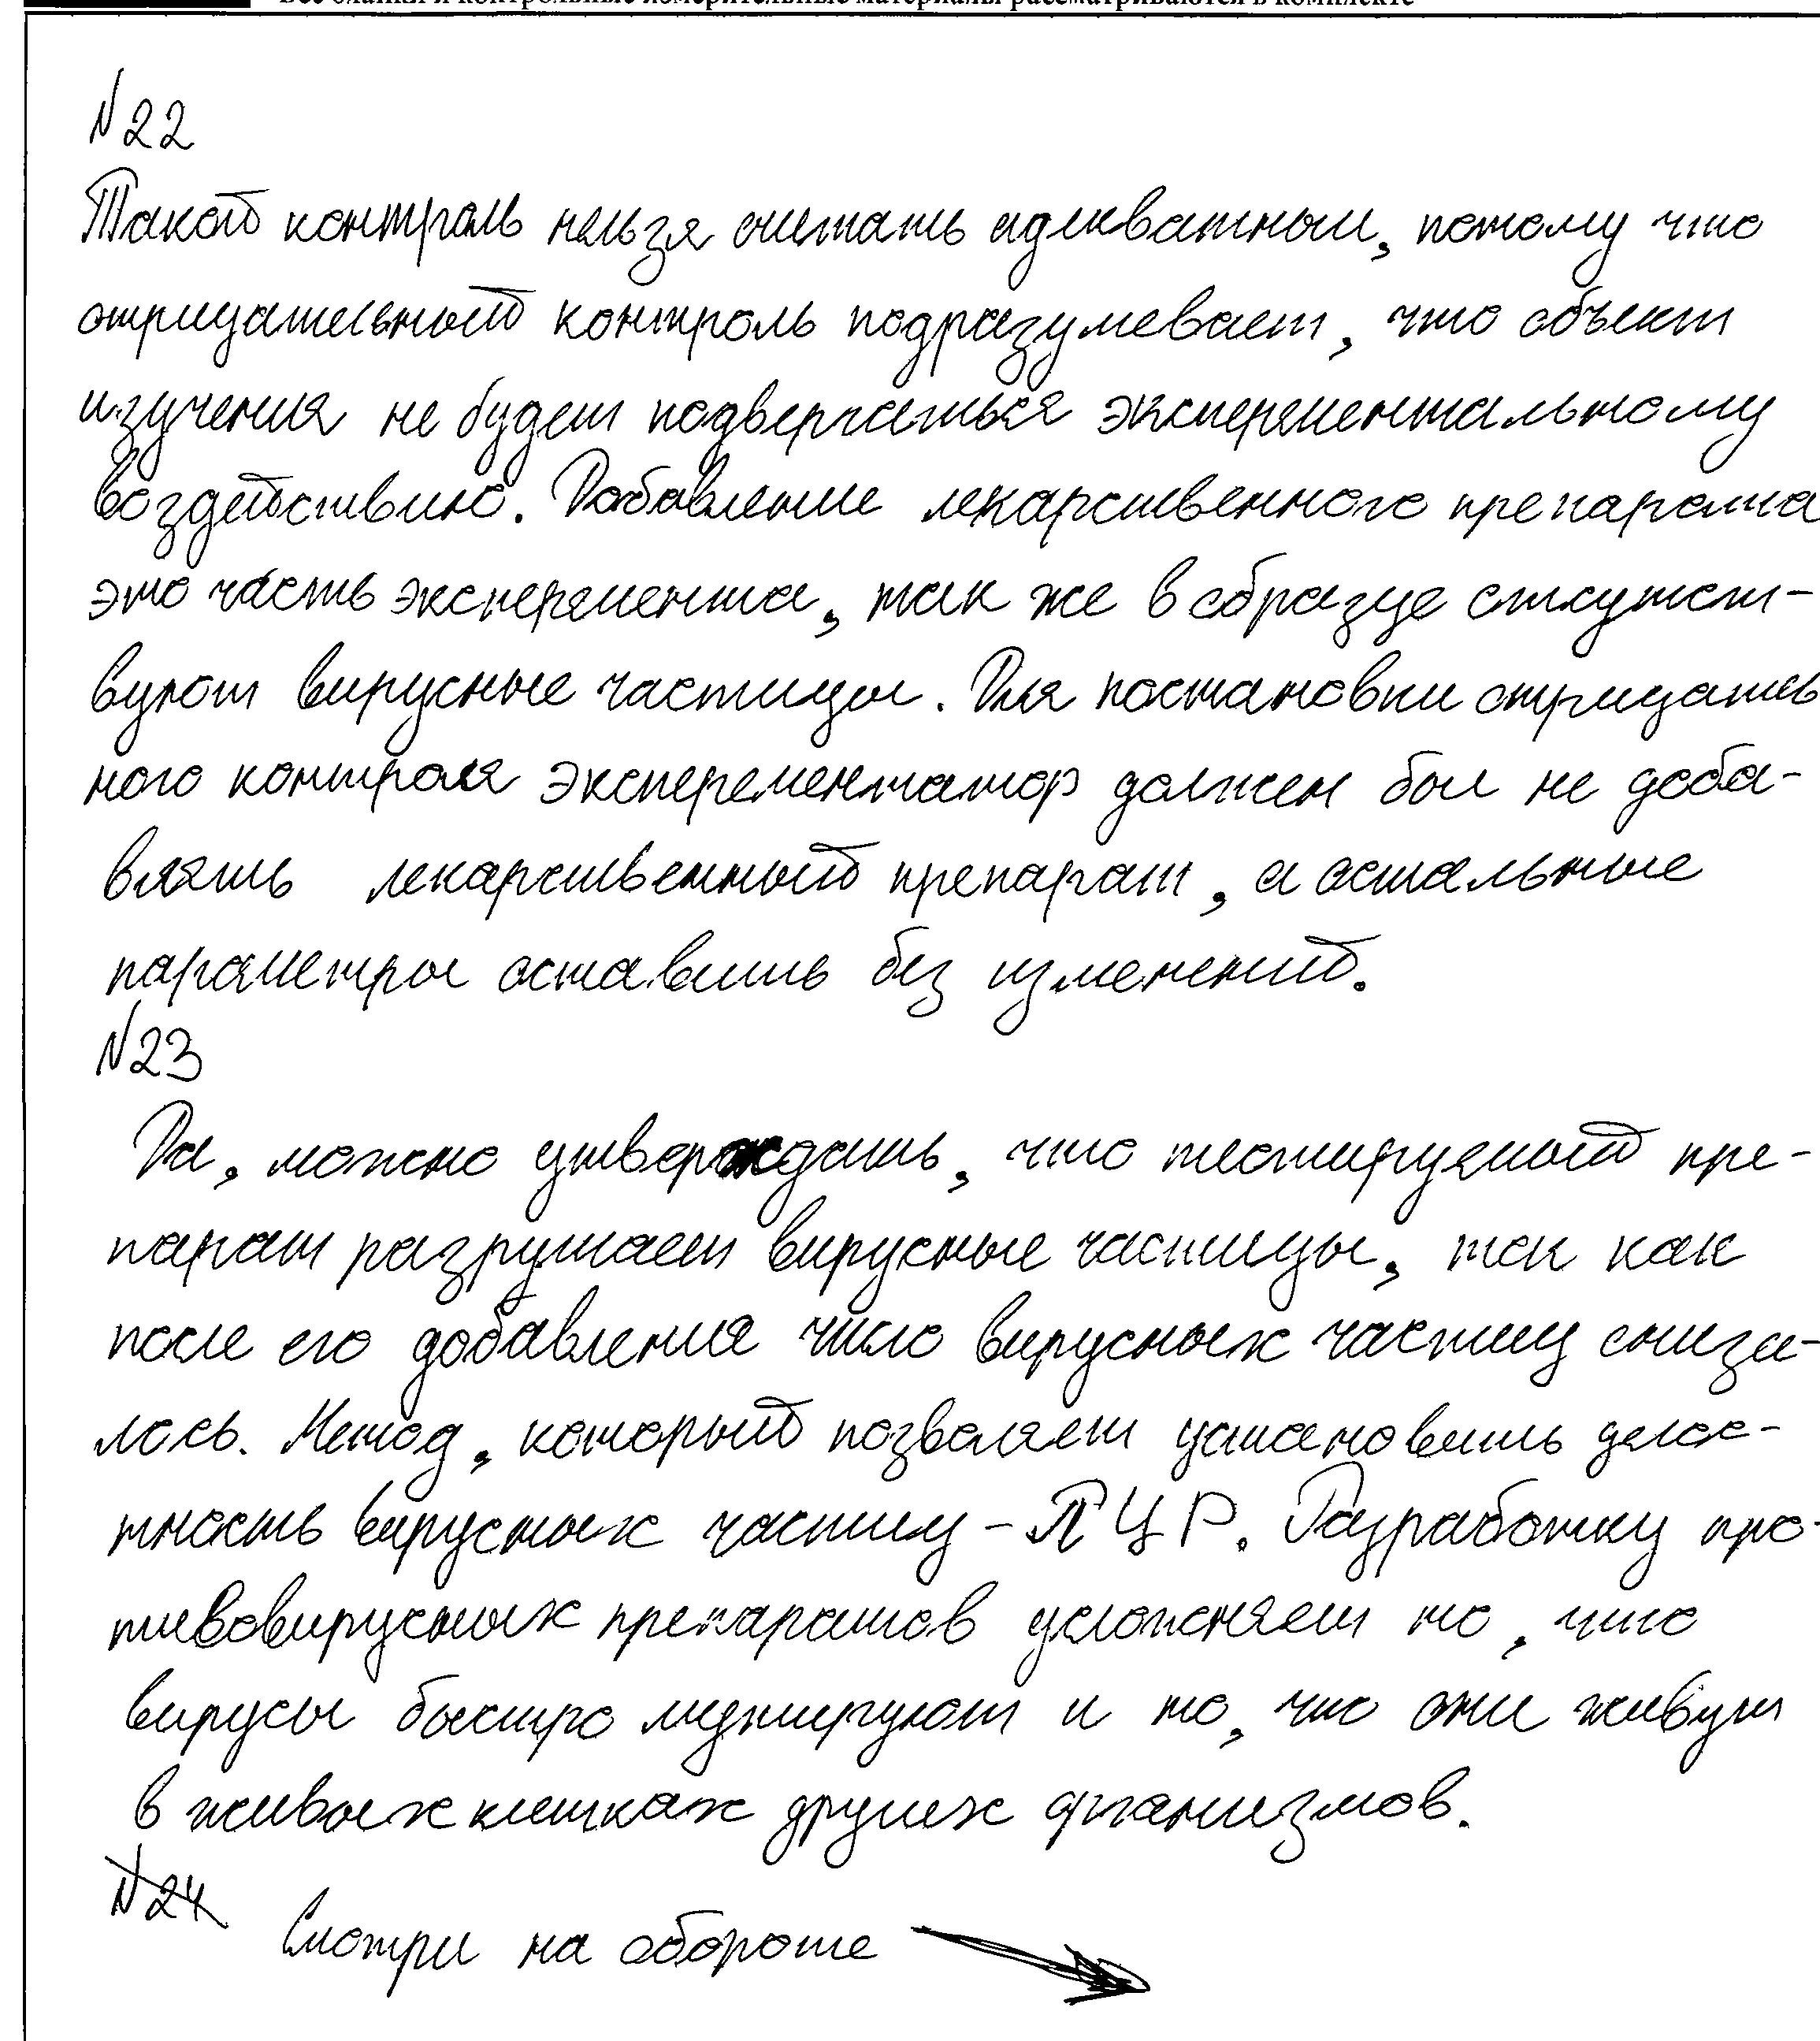 Все бланки и контрольные измерительные материалы рассматриваются в комплекте
№22
Такой контроль нельзя считать адекватным, потому что
отрицательный контроль подразумевает, что объект
изучения не будет подвергаться эксперементальному
воздействию. Добавление лекарственного препарата
это часть эксперемента, так же в образце отсутст-
вуют вирусные частицы. Для постановки отрицатель
ного контроля эксперементатор должен был не доба-
влять лекарственный препарат, а остальные
параметры оставить без изменений.
№23
Да, можно утверждать, что тестируемый пре-
парат разрушает вирусные частицы, так как
после его добавления число вирусных частиц снизи-
лось. Метод, который позволяет установить
вирусных частиц - ПЦР. Разработку про-
тивовирусных препаратов усложняет то, что
вирусы быстро мутируют и то, что они живут
в живых клетках других организмов.
№24 Смотри на обороте